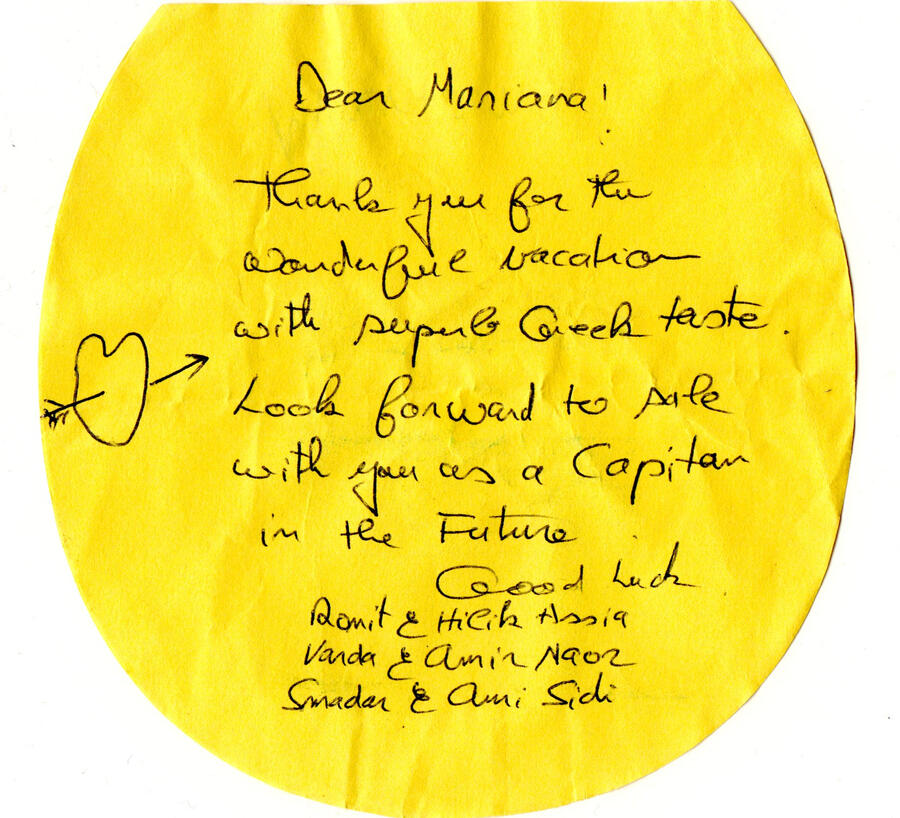 Dear Mariana!
Thank you for the
wonderful vacation
with superb Greek taste.
Look forward to sale
with you as a Capitan
in the Future
Good Luck
Ronit & Hilik Assia
Varda & Amir Naor
Smadar & Ami Sidi